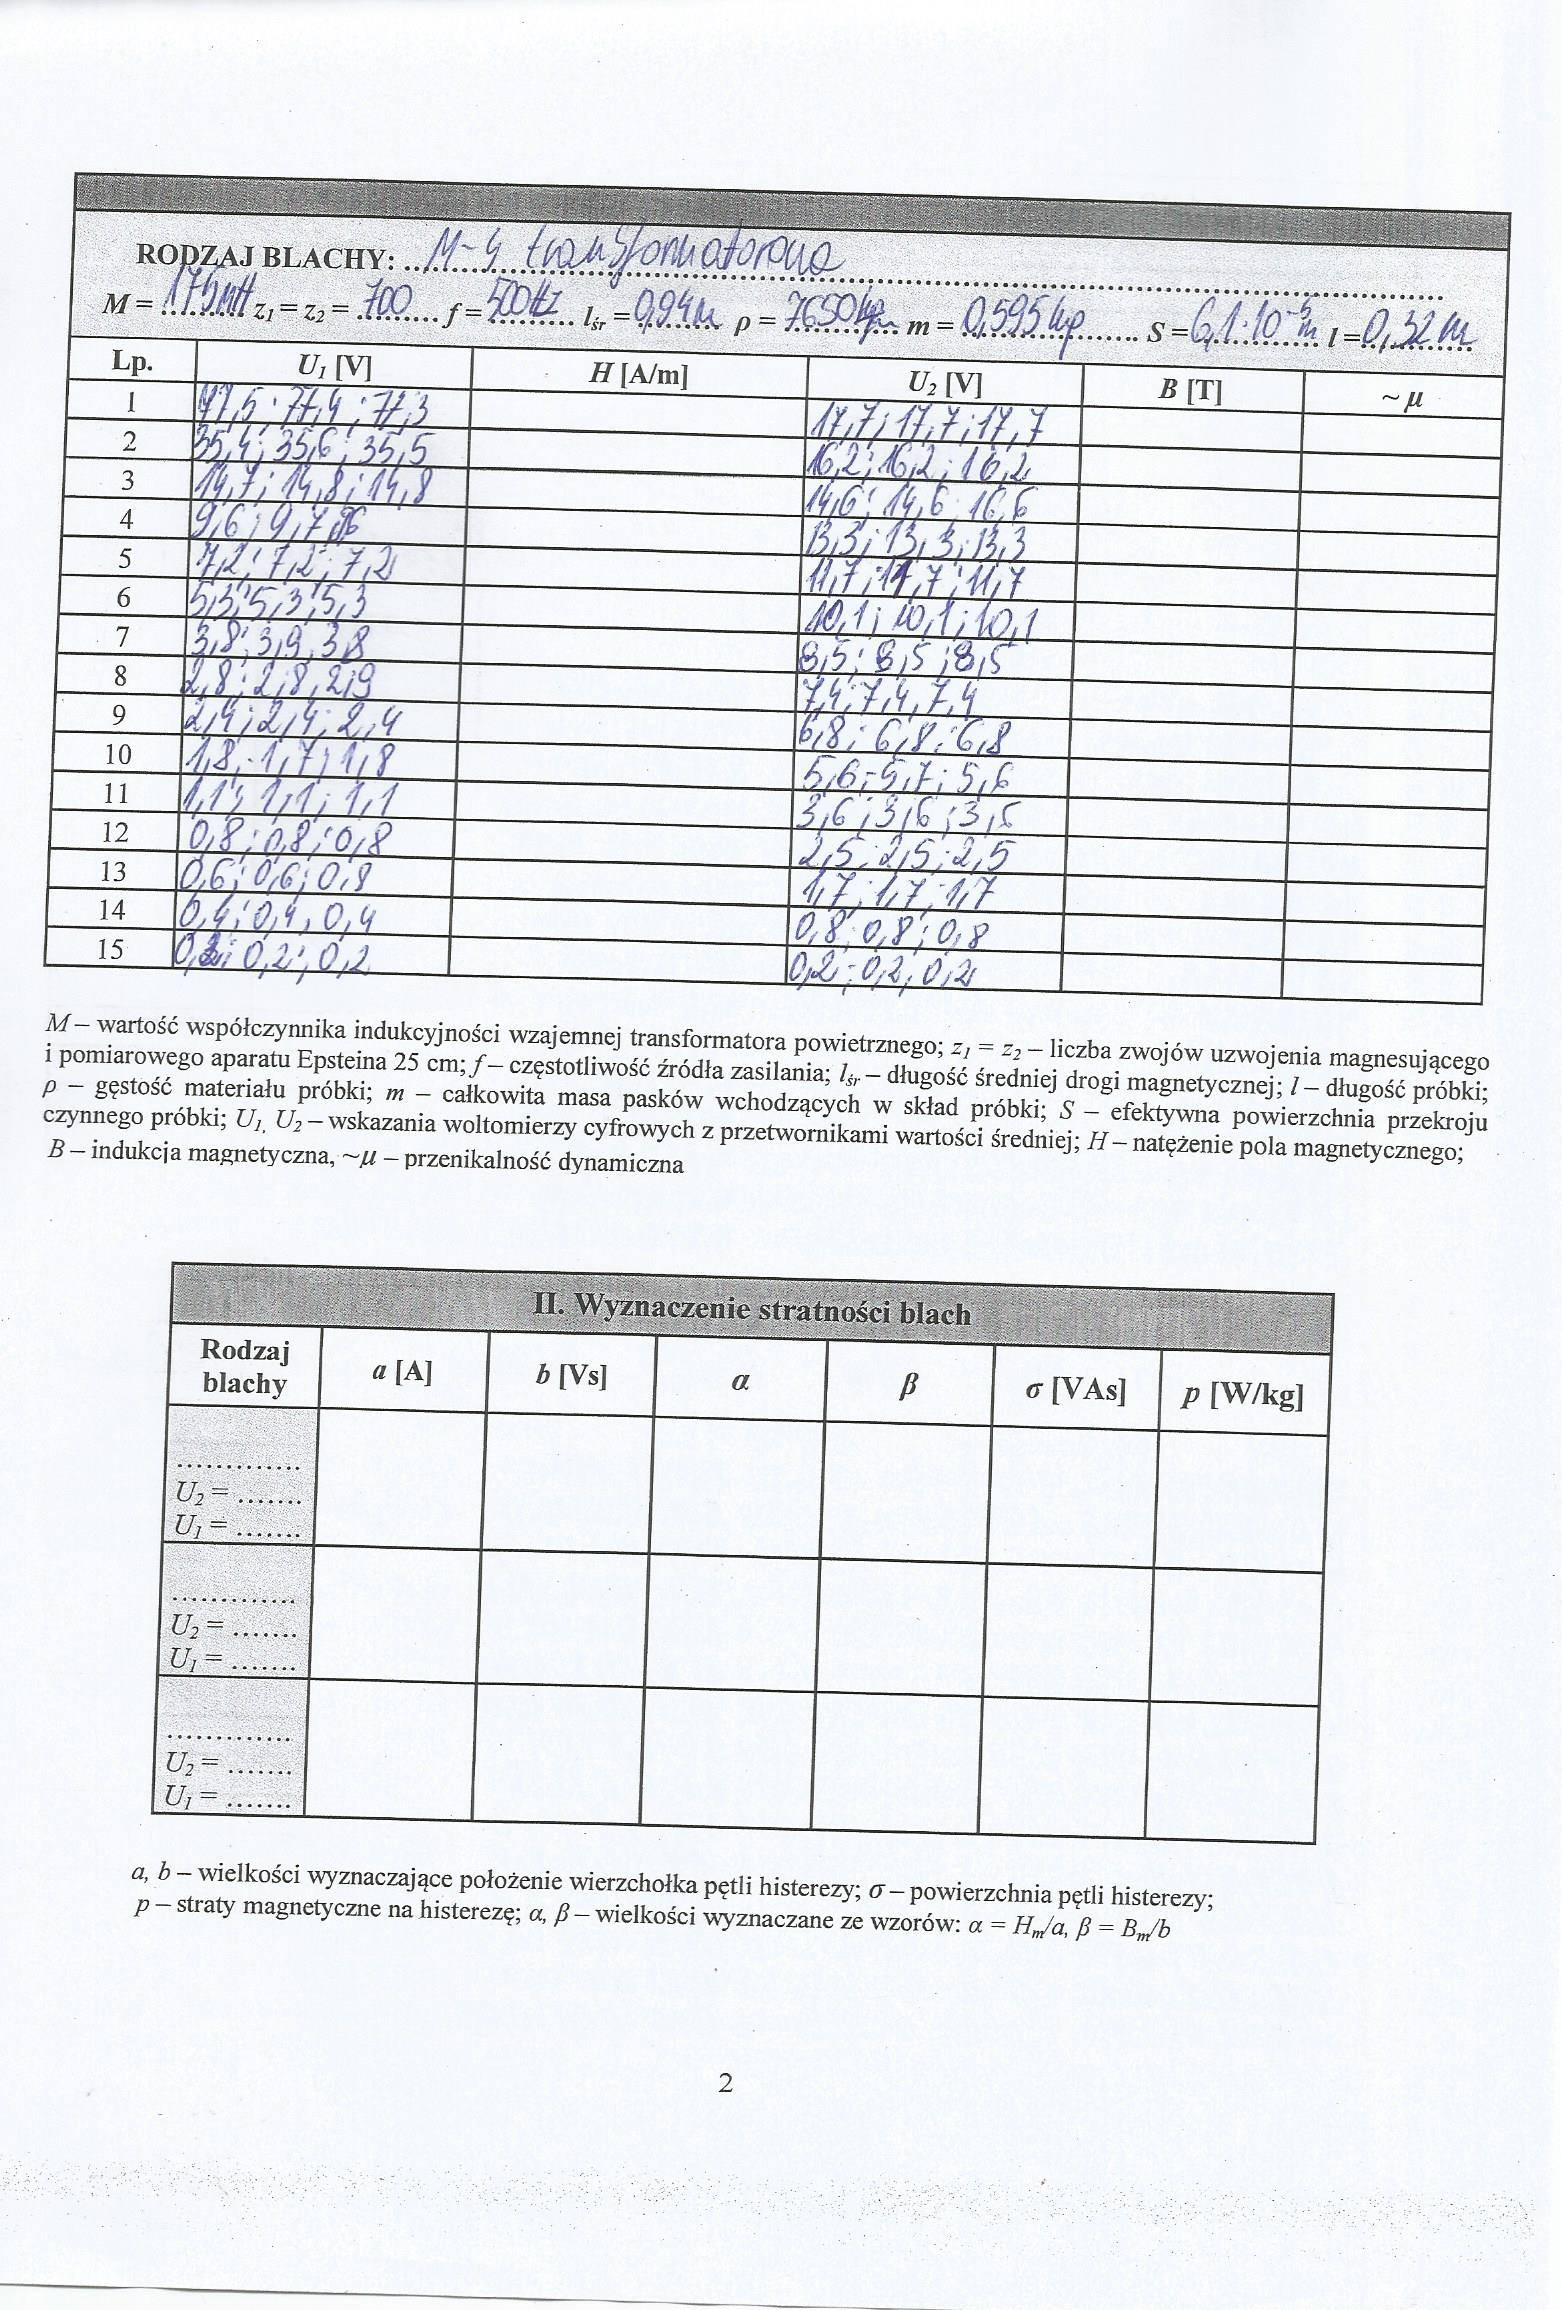 RODZAJ BLACHY: M-4 transformatorowa
M = 175mH z1 = z2 = 700 f = 500Hz lśr = 0,94m ρ = 7650 m = 0,595kg S = 6,1·10⁻⁵m l = 0,32m
Lp. U1 [V] H [A/m] U2 [V] B [T] ~μ
1 77,5; 77,4; 77,3 17,7; 17,7; 17,7
2 35,4; 35,6; 35,5 16,2; 16,2; 16,2
3 14,7; 14,8; 14,8 14,6; 14,6 16,6
4 9,6; 9,7 13,3; 13,3; 13,3
5 7,2; 7,2; 7,2 11,7; 11,7; 11,7
6 5,3; 5,3; 5,3 10,1; 10,1; 10,1
7 3,8; 3,9, 3,8 8,5; 8,5; 8,5
8 2,8; 2,8, 2,9 7,4; 7,4, 7,4
9 2,4; 2,4; 2,4 6,8; 6,8; 6,8
10 1,8; 1,7; 1,8 5,6; 5,7; 5,6
11 1,1; 1,1; 1,1 3,6; 3,6; 3,6
12 0,8; 0,8; 0,8 2,5; 2,5; 2,5
13 0,6; 0,6; 0,8 1,7; 1,7; 1,7
14 0,4; 0,4, 0,4 0,8 0,8; 0,8
15 0,2; 0,2; 0,2 0,2; 0,2, 0,2
M – wartość współczynnika indukcyjności wzajemnej transformatora powietrznego; z1 = z2 – liczba zwojów uzwojenia magnesującego
i pomiarowego aparatu Epsteina 25 cm; f – częstotliwość źródła zasilania; lśr – długość średniej drogi magnetycznej; l – długość próbki;
ρ – gęstość materiału próbki; m – całkowita masa pasków wchodzących w skład próbki; S – efektywna powierzchnia przekroju
czynnego próbki; U1, U2 – wskazania woltomierzy cyfrowych z przetwornikami wartości średniej; H – natężenie pola magnetycznego;
B – indukcja magnetyczna, ~μ – przenikalność dynamiczna
II. Wyznaczenie stratności blach
Rodzaj blachy a [A] b [Vs] α β σ [VAs] p [W/kg]
..............
U2 = .......
U1 = .......
..............
U2 = .......
U1 = .......
..............
U2 = .......
U1 = .......
a, b – wielkości wyznaczające położenie wierzchołka pętli histerezy; σ – powierzchnia pętli histerezy;
p – straty magnetyczne na histerezę; α, β – wielkości wyznaczane ze wzorów: α = Hm/a, β = Bm/b
2